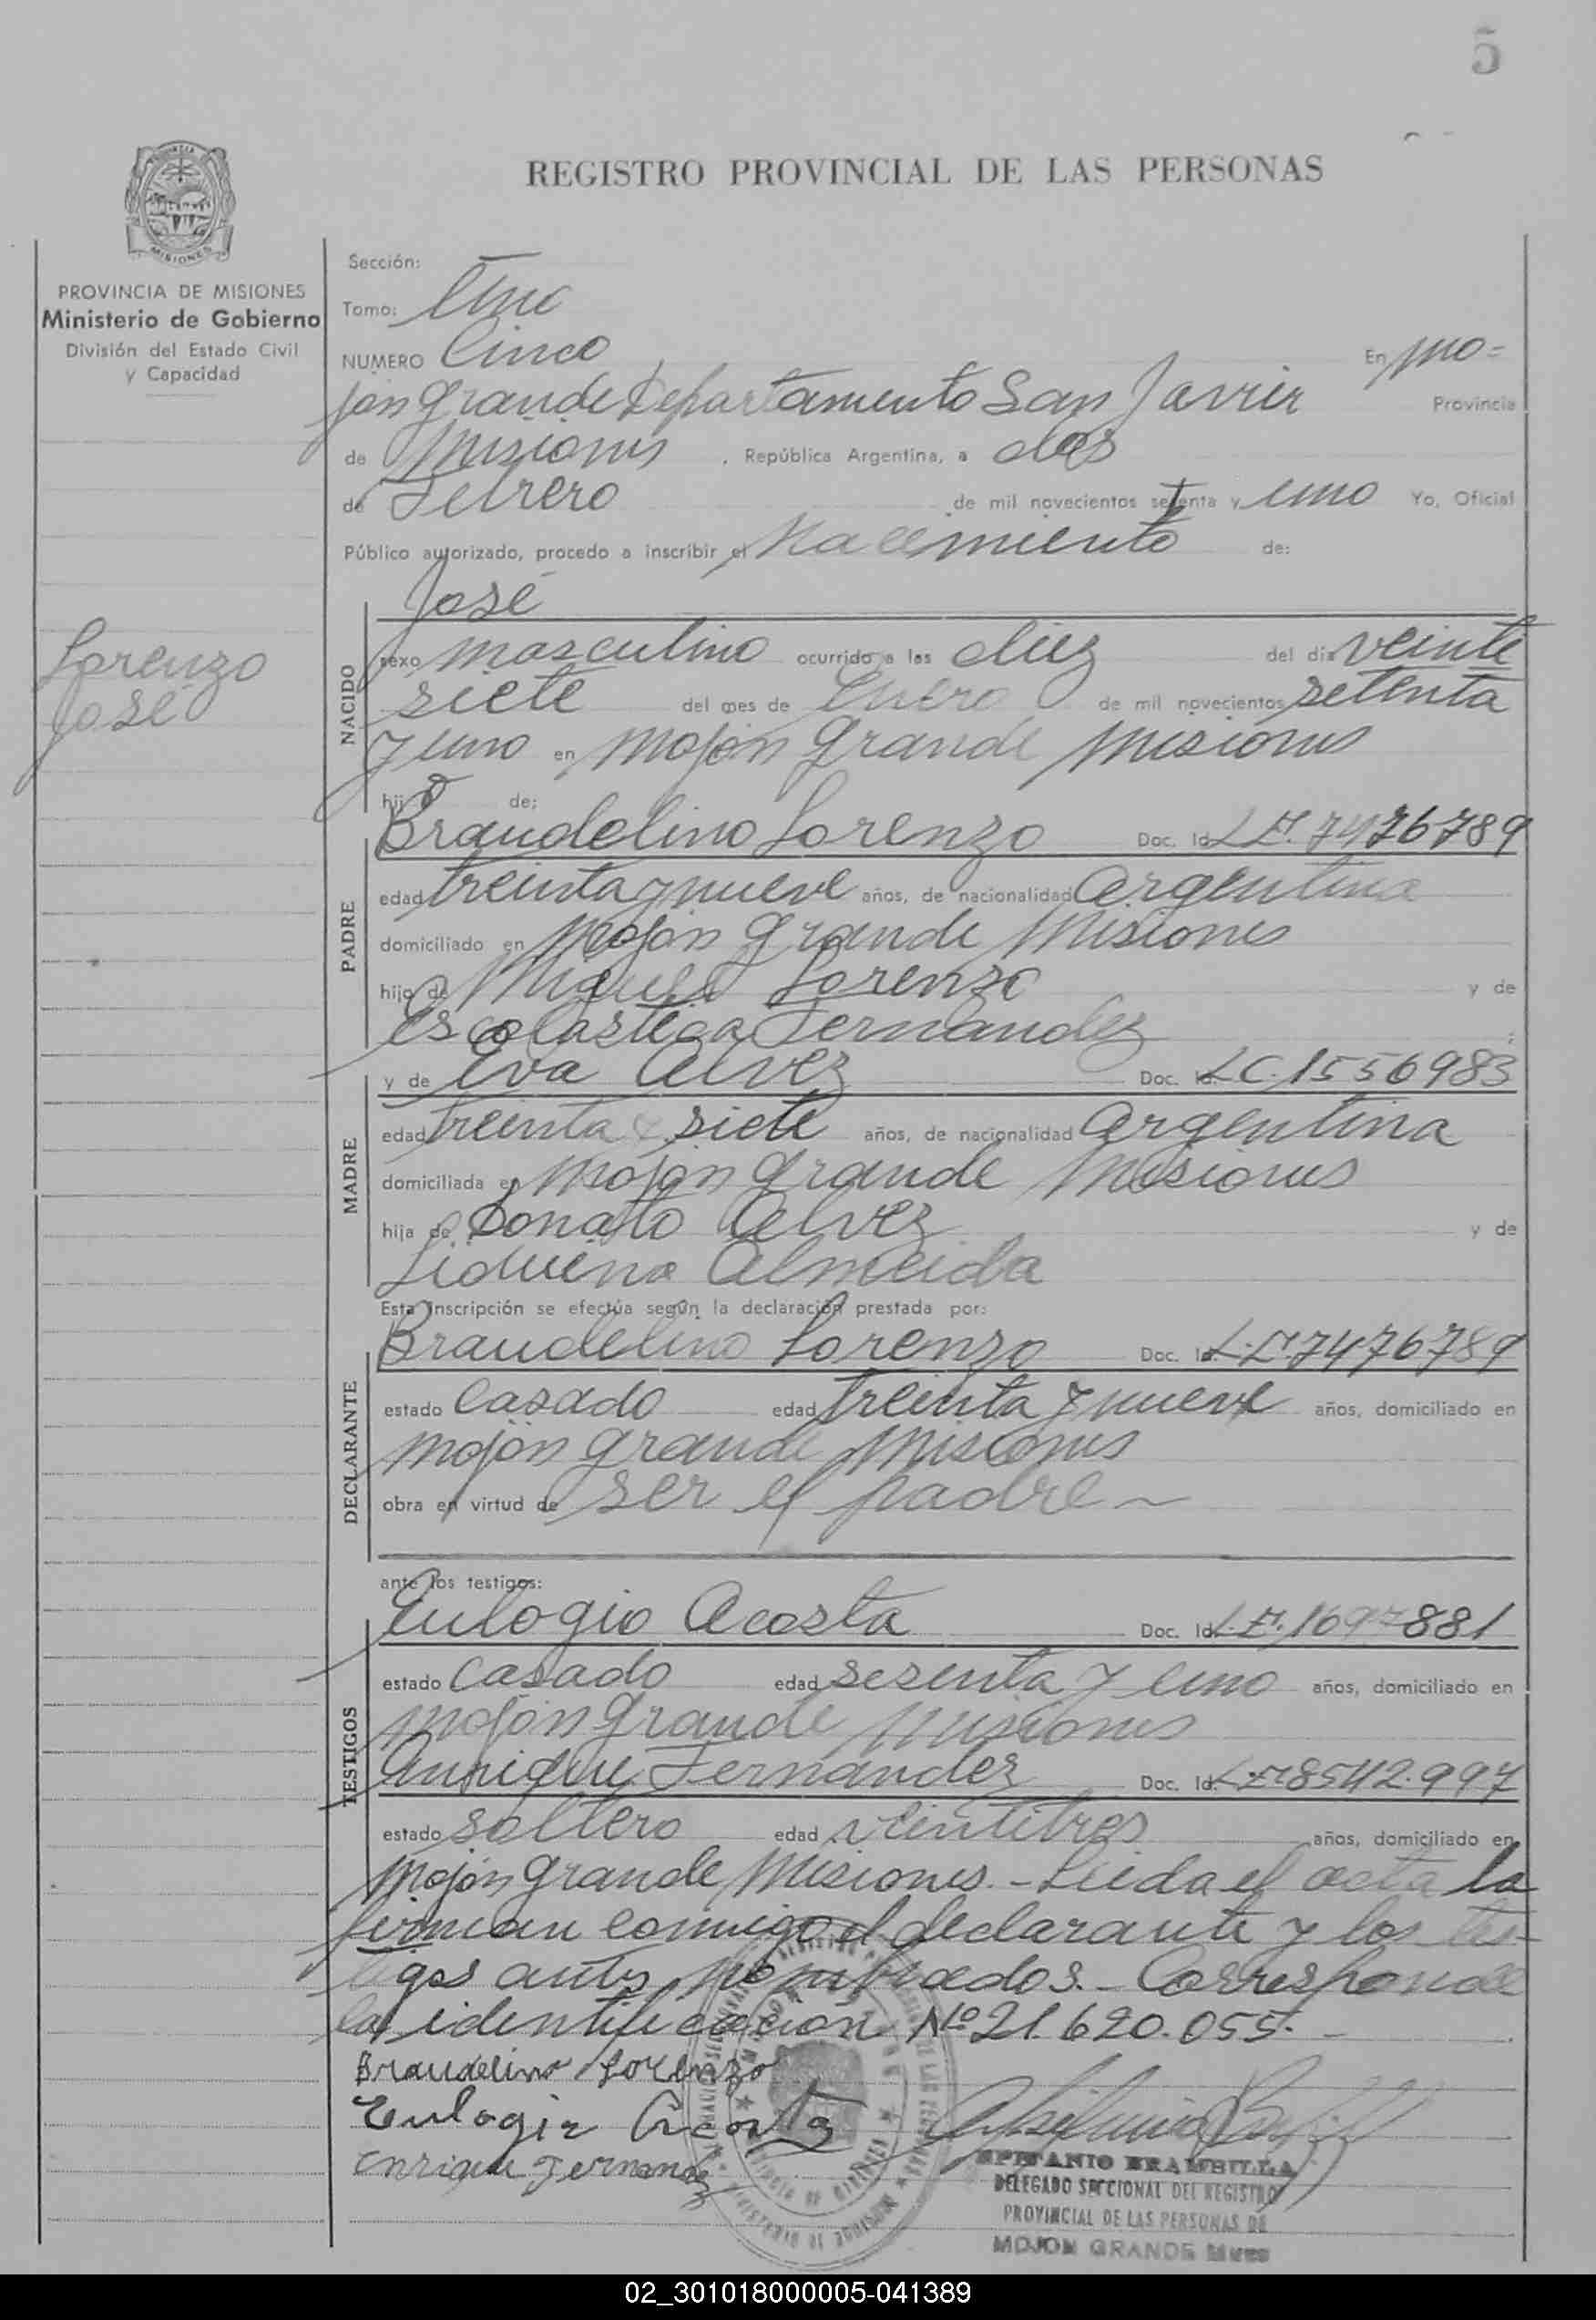 5
REGISTRO PROVINCIAL DE LAS PERSONAS
MISIONES
PROVINCIA DE MISIONES
Ministerio de Gobierno
División del Estado Civil
y Capacidad
Lorenzo
José
Sección: —
Tomo: Uno
NUMERO Cinco En Mo=
jón grande Departamento San Javier Provincia
de Misiones , República Argentina, a dos
de Febrero de mil novecientos setenta y uno Yo, Oficial
Público autorizado, procedo a inscribir el Nacimiento de:
José
NACIDO
sexo masculino ocurrido a las diez del día veinte
siete del mes de Enero de mil novecientos setenta
y uno en Mojón grande Misiones
hijo de:
PADRE
Braudelino Lorenzo Doc. Id. L.E. 7476789
edad treinta y nueve años, de nacionalidad Argentina
domiciliado en Mojón grande Misiones
hijo de Miguel Lorenzo y de
Escolastica Fernandez ;
MADRE
y de Eva Alvez Doc. Id. L.C. 1556983
edad treinta y siete años, de nacionalidad Argentina
domiciliada en Mojón grande Misiones
hija de Donato Alvez y de
Liduina Almeida
Esta inscripción se efectúa según la declaración prestada por:
DECLARANTE
Braudelino Lorenzo Doc. Id. L.E. 7476789
estado casado edad treinta y nueve años, domiciliado en
Mojón grande Misiones
obra en virtud de ser el padre ~
ante los testigos:
TESTIGOS
Eulogio Acosta Doc. Id. L.E. 1697881
estado casado edad sesenta y uno años, domiciliado en
Mojón grande Misiones
Enrique Fernandez Doc. Id. L.E. 8542.997
estado soltero edad veintitres años, domiciliado en
Mojón grande Misiones.- Leida el acta la
firman conmigo el declarante y los tes-
tigos antes nombrados.- Corresponde
la identificación Nº 21.620.055.-
Braudelino Lorenzo
Eulogio Acosta
Enrique Fernandez
EPIFANIO BRAMBILLA
DELEGADO SECCIONAL DEL REGISTRO
PROVINCIAL DE LAS PERSONAS DE
MOJON GRANDE Mnes
02_301018000005-041389